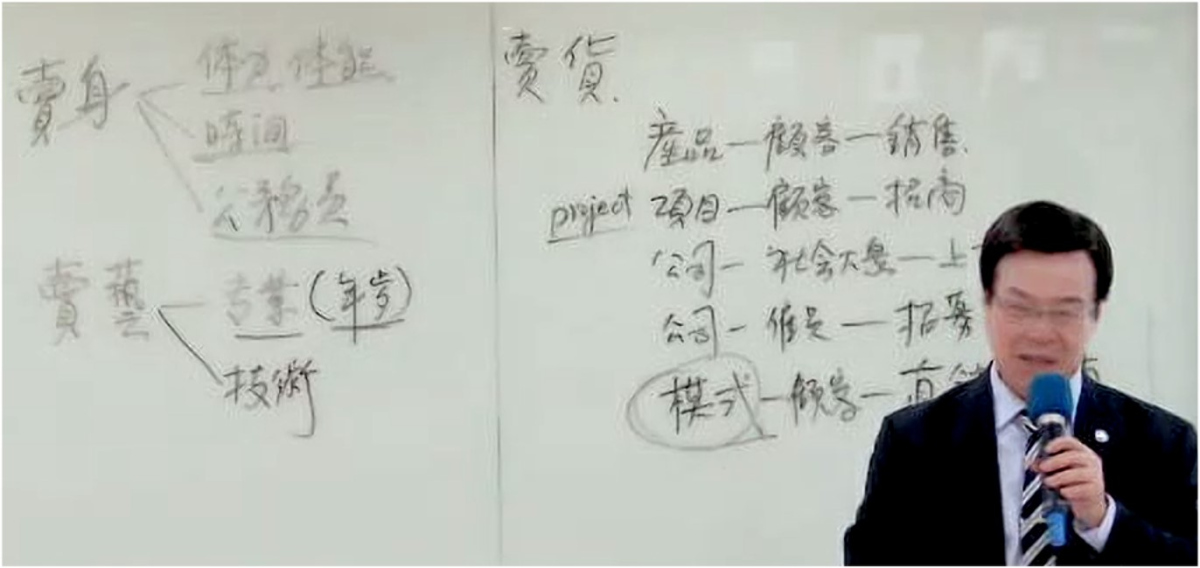 賣身
体力、体能
時间
公務員
賣藝
专業(年岁)
技術
賣货.
産品—顧客—銷售.
project 項目—顧客—招商
公司—社会大衆—上
公司—催員—招募
模式—顧客—直銷